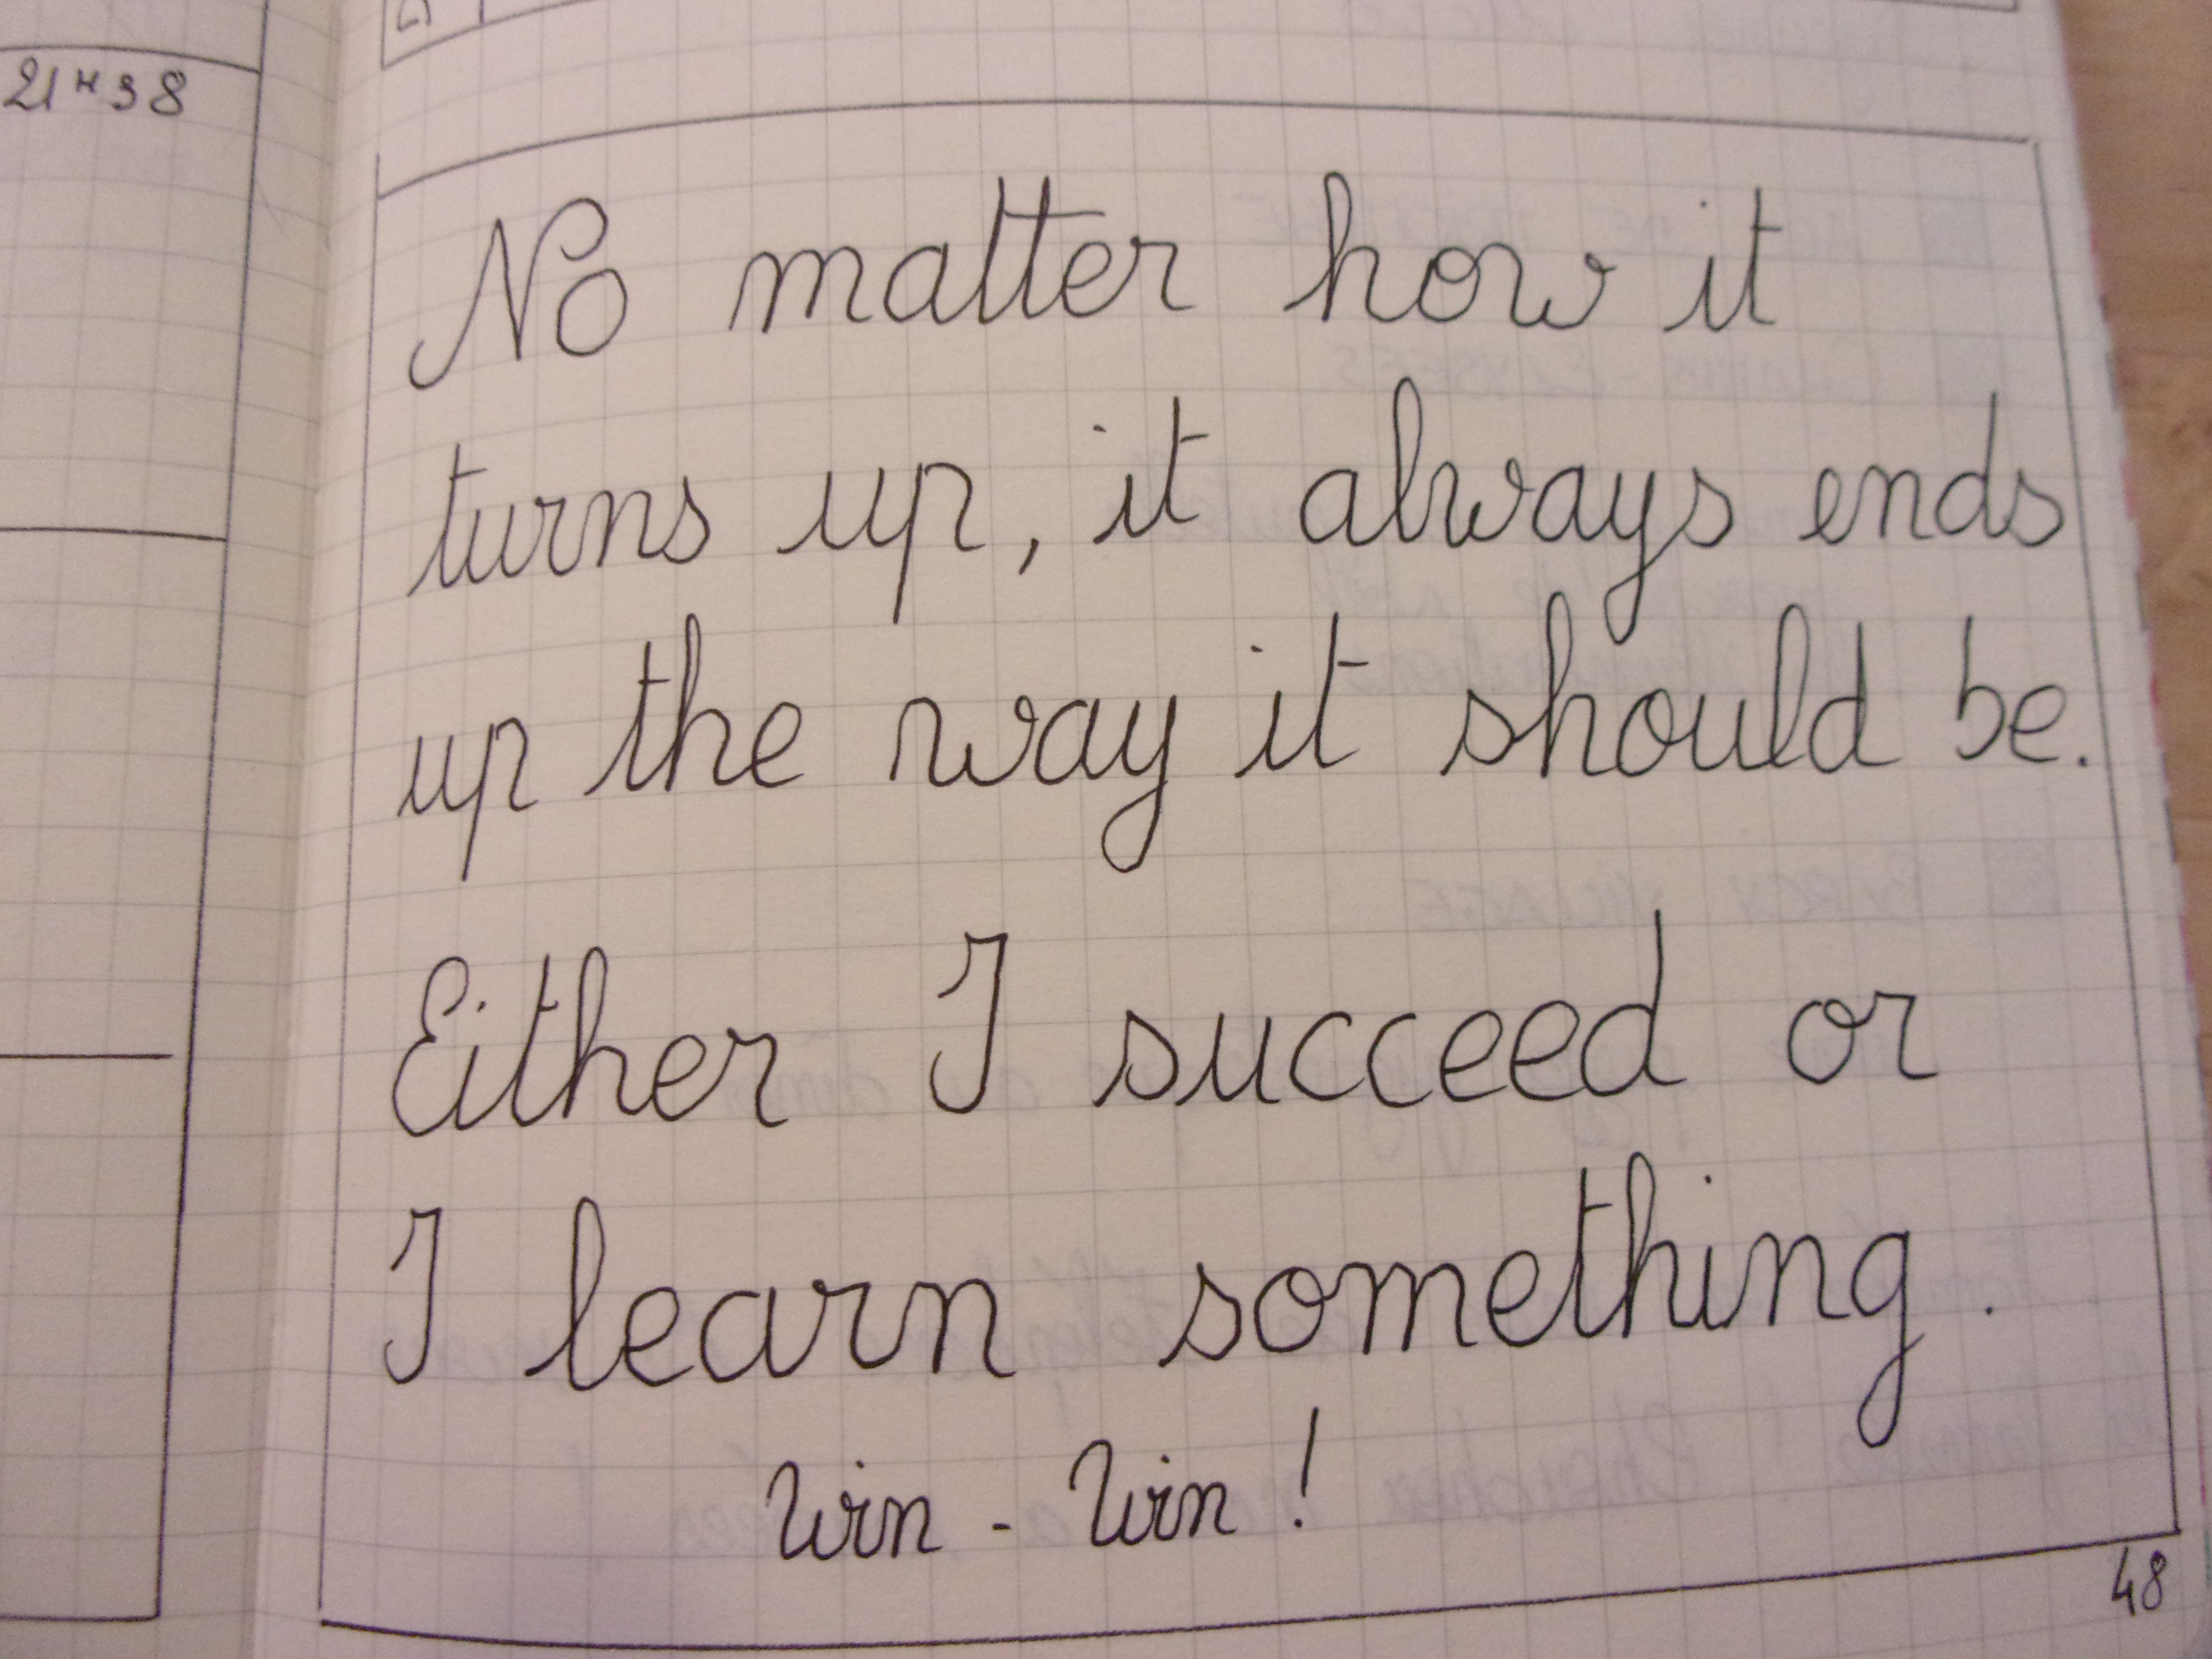 21H38
No matter how it
turns up, it always ends
up the way it should be.
Either I succeed or
I learn something.
Win - Win !
48